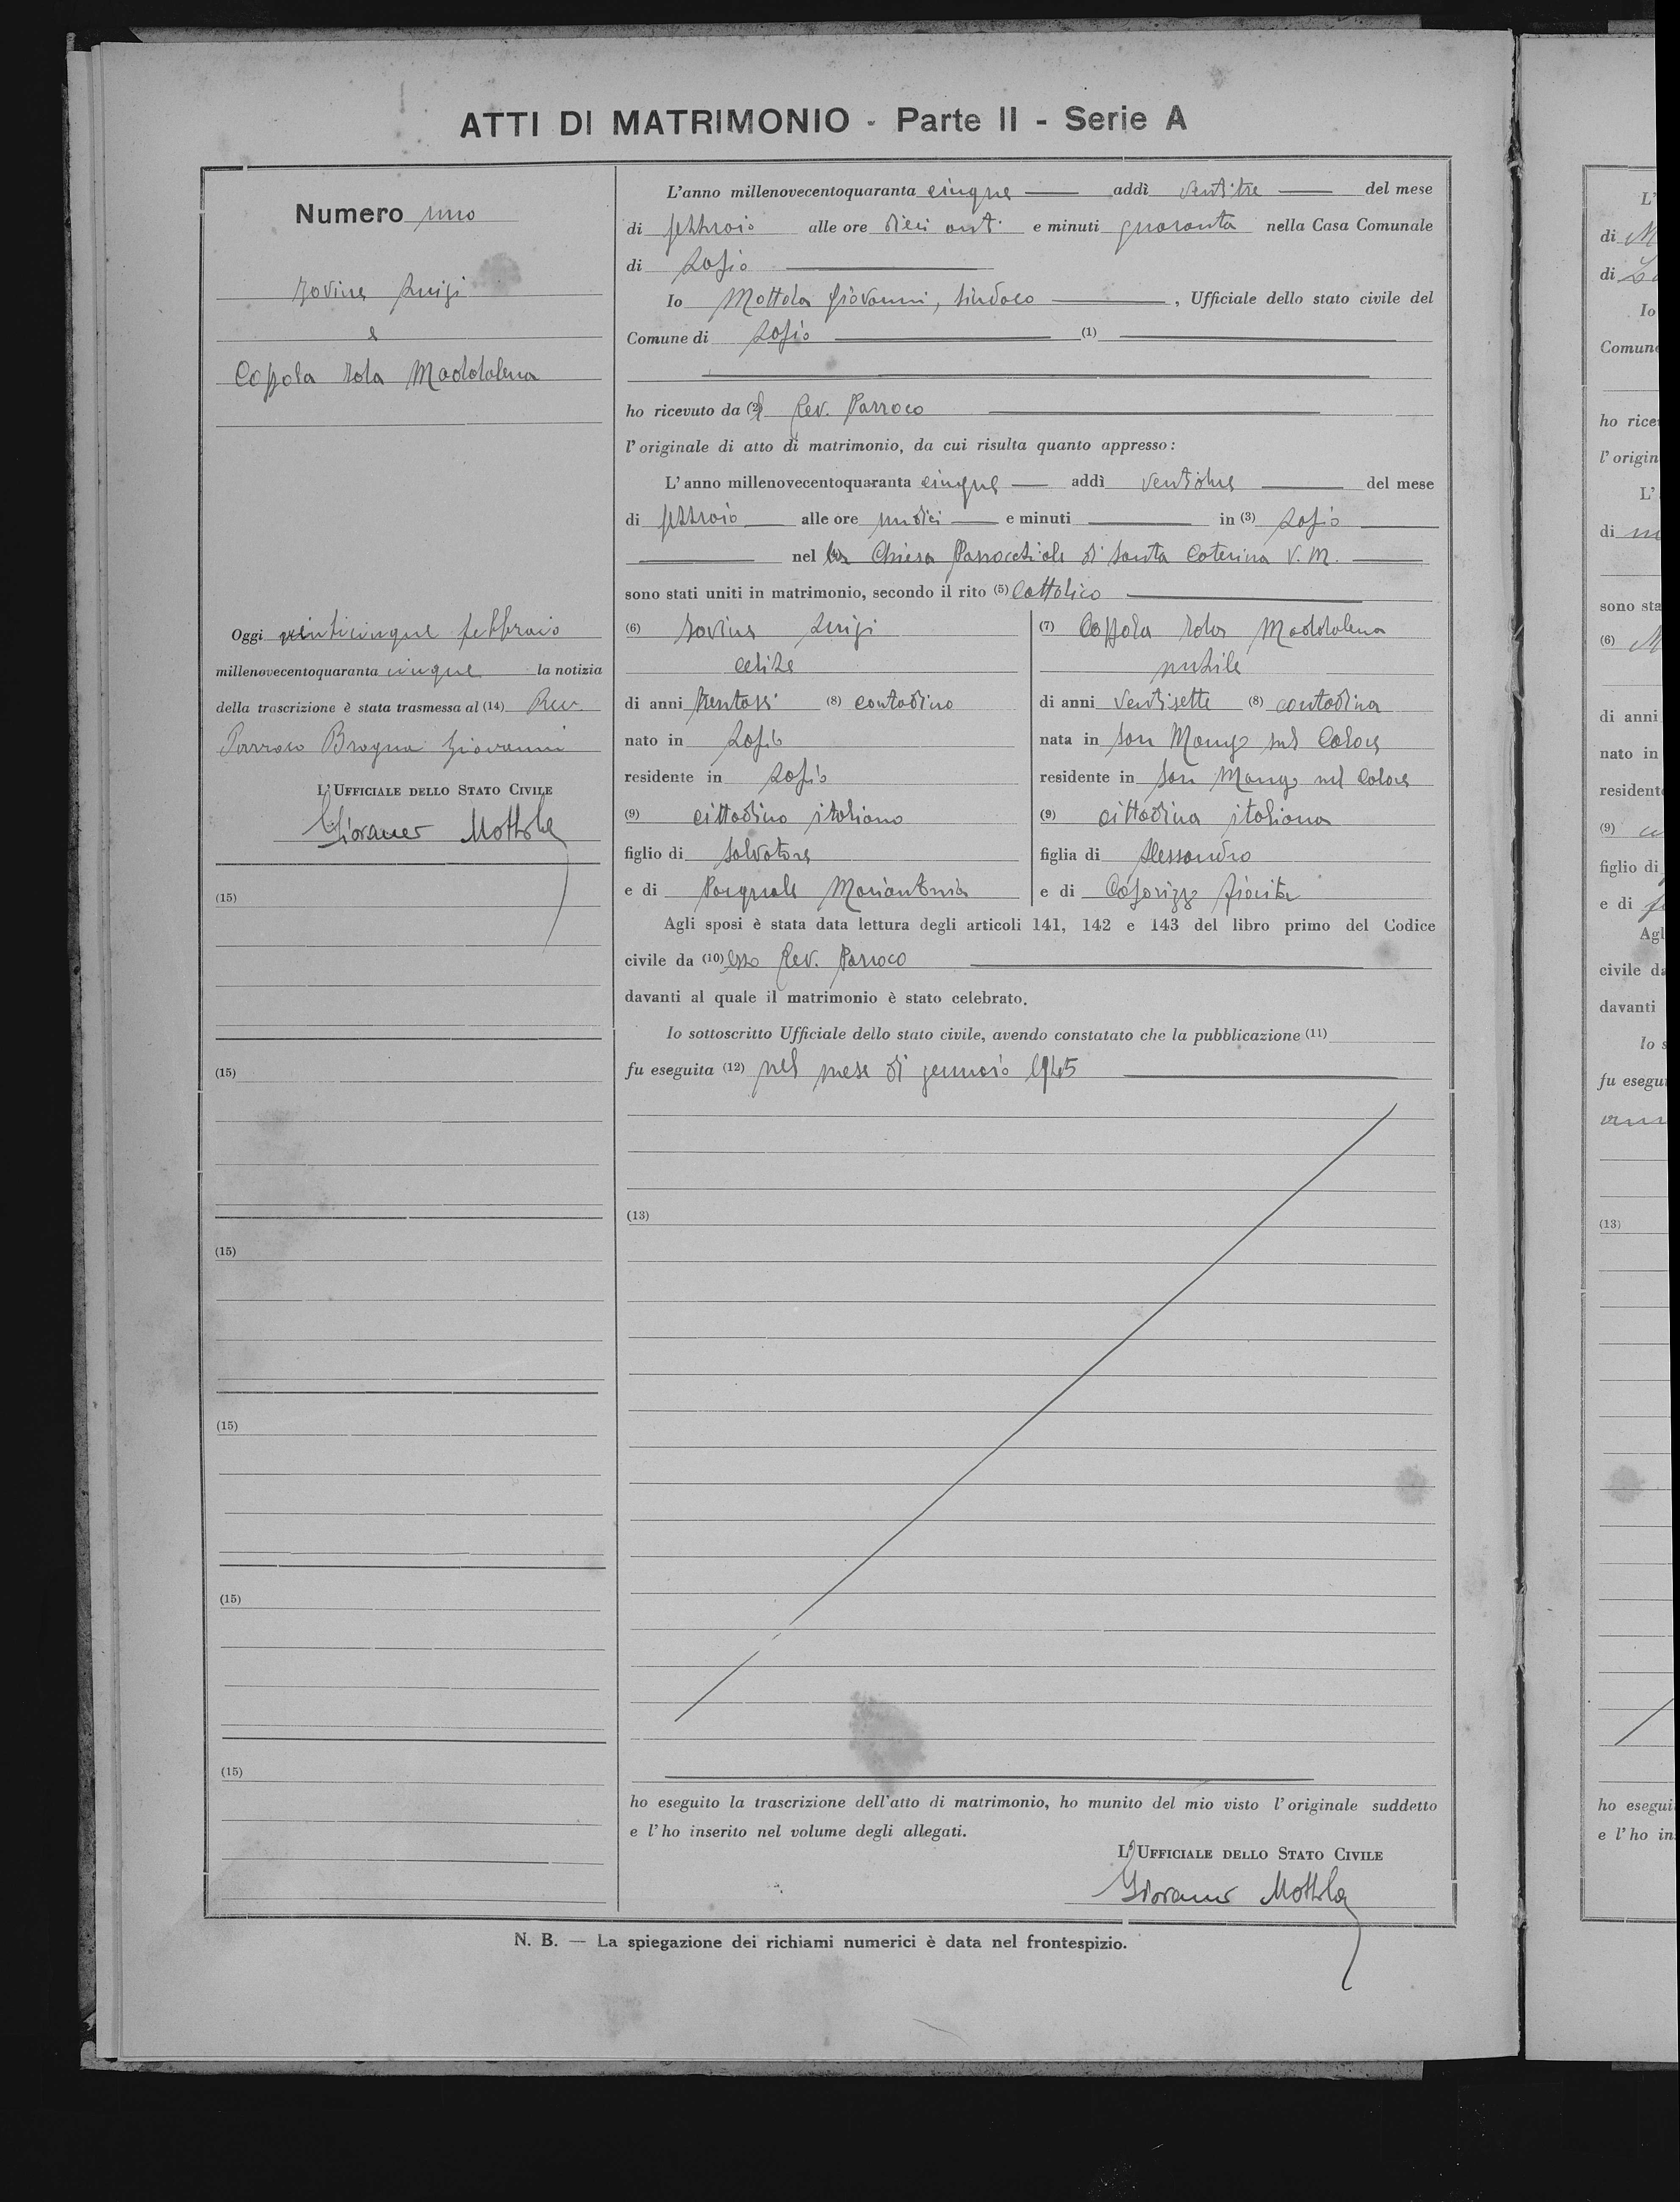 ATTI DI MATRIMONIO - Parte II - Serie A
Numero uno
Iovine Luigi
e
Coppola Rosa Maddalena
Oggi venticinque febbraio
millenovecentoquaranta cinque la notizia
della trascrizione è stata trasmessa al (14) Rev.
Parroco Brogna Giovanni
L'UFFICIALE DELLO STATO CIVILE
Giovanni Mottola
(15)
(15)
(15)
(15)
(15)
(15)
L'anno millenovecentoquaranta cinque addì ventitre del mese
di febbraio alle ore dieci ant. e minuti quaranta nella Casa Comunale
di Lapio
Io Mottola Giovanni, Sindaco, Ufficiale dello stato civile del
Comune di Lapio (1)
ho ricevuto da (2) Rev. Parroco
l'originale di atto di matrimonio, da cui risulta quanto appresso:
L'anno millenovecentoquaranta cinque addì ventidue del mese
di febbraio alle ore undici e minuti in (3) Lapio
nel la Chiesa Parrocchiale di Santa Caterina V. M.
sono stati uniti in matrimonio, secondo il rito (5) Cattolico
(6) Iovine Luigi
celibe
di anni trentasei (8) contadino
nato in Lapio
residente in Lapio
(9) cittadino italiano
figlio di Salvatore
e di Pasquale Mariantonia
(7) Coppola Rosa Maddalena
nubile
di anni ventisette (8) contadina
nata in San Mango sul Calore
residente in San Mango sul Calore
(9) cittadina italiana
figlia di Alessandro
e di Caforizzo
Agli sposi è stata data lettura degli articoli 141, 142 e 143 del libro primo del Codice
civile da (10) esso Rev. Parroco
davanti al quale il matrimonio è stato celebrato.
Io sottoscritto Ufficiale dello stato civile, avendo constatato che la pubblicazione (11)
fu eseguita (12) nel mese di gennaio 1945
(13)
ho eseguito la trascrizione dell'atto di matrimonio, ho munito del mio visto l'originale suddetto
e l'ho inserito nel volume degli allegati.
L'UFFICIALE DELLO STATO CIVILE
Giovanni Mottola
N. B. — La spiegazione dei richiami numerici è data nel frontespizio.
L'
di
di
Io
Comun
ho rice
l'origin
L'
di
sono sta
(6)
di anni
nato in
resident
(9)
figlio di
e di
Agl
civile d
davanti
Io s
fu esegu
(13)
ho esegui
e l'ho in